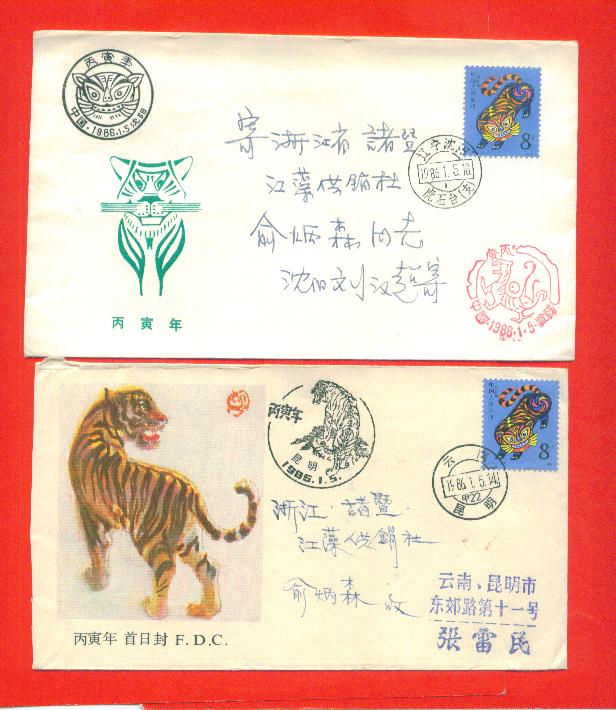 丙寅年
中国·1986.1.5·沈阳
8
辽宁沈阳
1986.1.5.18
虎石台(支)
寄浙江省諸暨
江藻供銷社
俞炳森同志
沈阳刘汉超寄
丙寅
1986·1·5
丙寅年
8
云南
1986.1.5.14
甲22
昆明
丙寅年
昆明
1986.1.5.
浙江·諸暨
江藻供銷社
俞炳森 收
云南、昆明市
东郊路第十一号
張雷民
丙寅年 首日封 F.D.C.